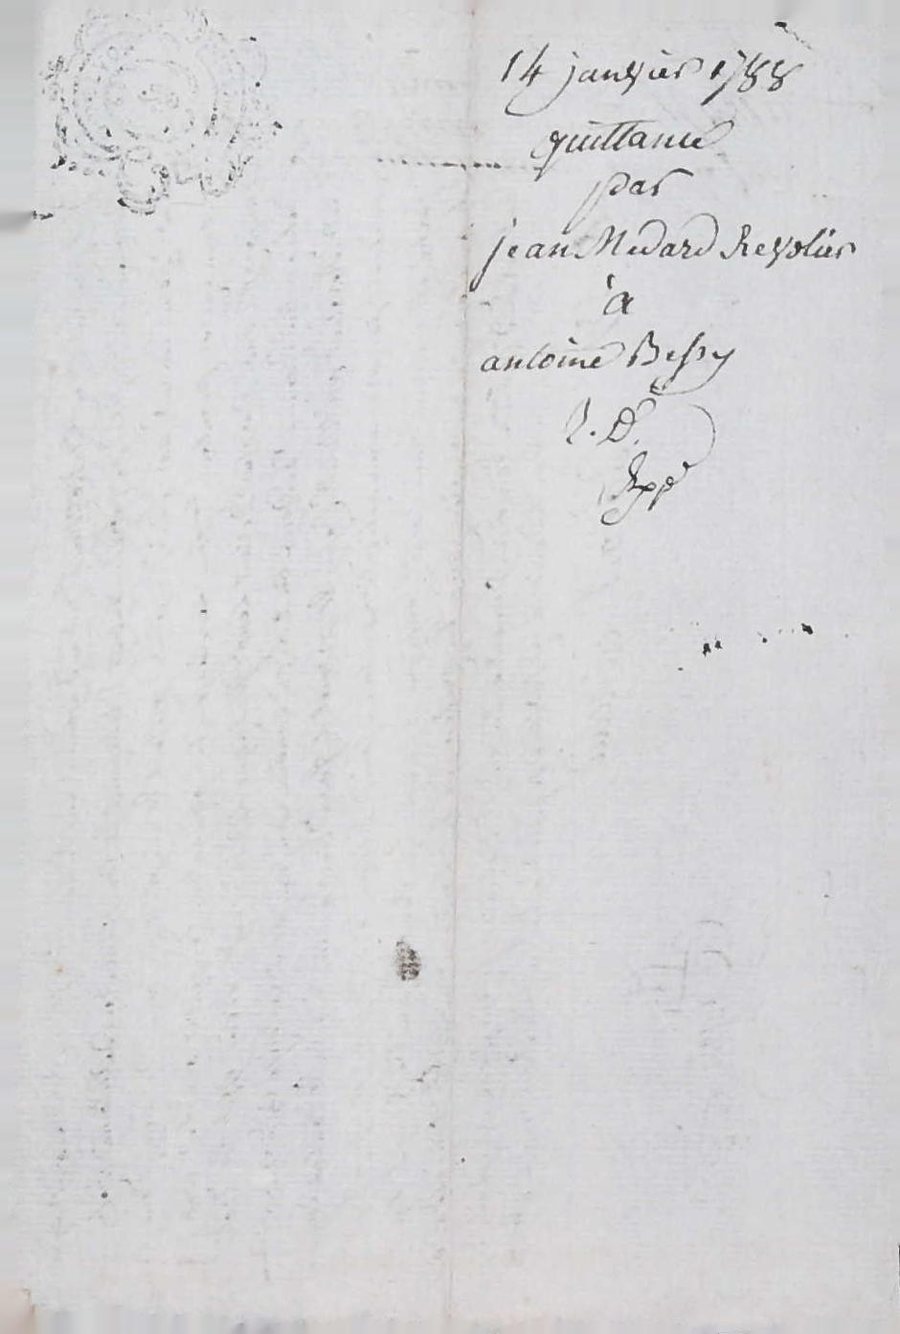 14 janvier 1788
quittance
par
jean Medard Revolier
à
antoine Bessy